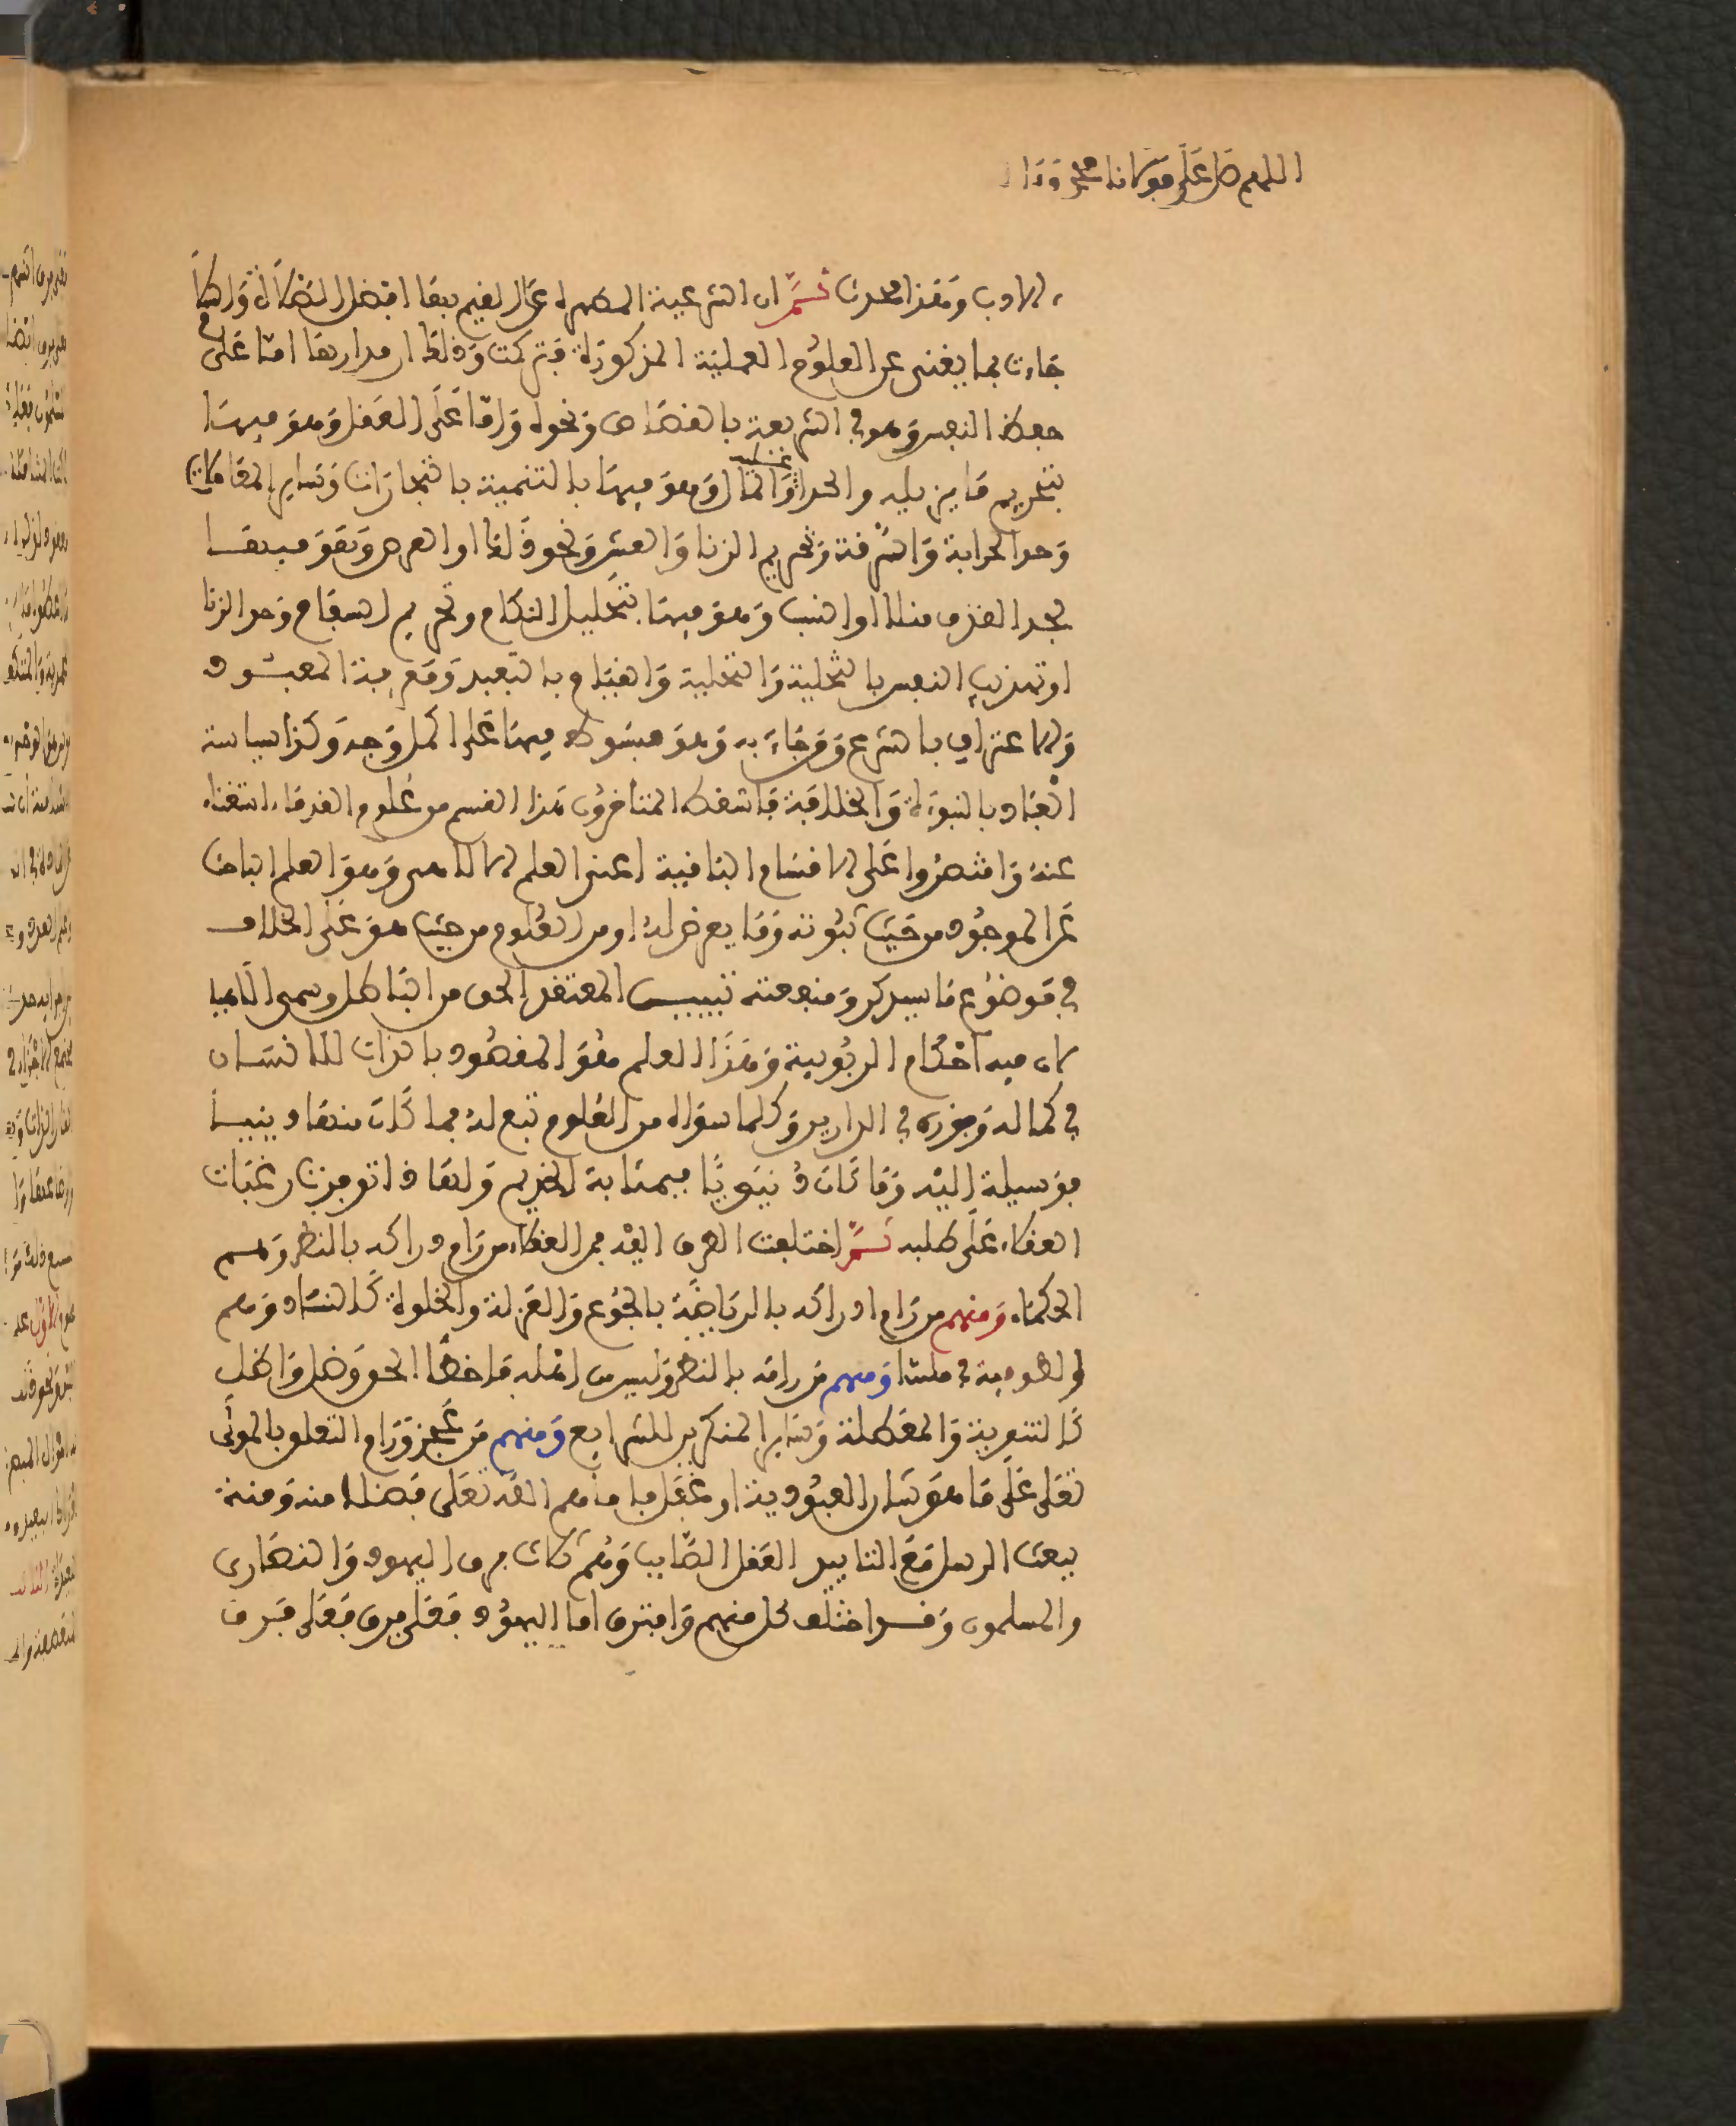 اللهم صل على مولانا محمد وءا
الادب وهذا محدث ثم ان الشرعية المطهرة على القيم بها افضل الصلاة وازكا
جاءت بما يغنى عن العلوم العملية المذكورة فتركت وذلك ان مدارها اما على
حفظ النفس وهو في الشريعة بالقصاص ونحوه واما على العقل وهو فيها
بتحريم ما يزيله والحد عليه والمال وهو فيها بالتنمية بالتجارات وساير المعاملات
وحد الحرابة والسرقة وتحريم الربا والغش ونحو ذلك او العرض وهو فيها
بحد القذف مثلا او النسب وهو فيها بتحليل النكاح وتحريم السفاح وحد الزنا
او تهذيب النفس بالتحلية والتخلية والقيام بالتعبد ومعرفة المعبود
والاعتراف بالشرع وقد جاء به وهو مبسوط فيها على اكمل وجه وكذا سياسة
العباد بالنبوة والخلافة فاسقط المتأخرون هذا القسم من علوم القدماء استغناء
عنه واقتصروا على الاقسام الباقية اعنى العلم الالاهي وهو العلم الباحث
عن الموجود من حيث ثبوته وما يعرض له او من المعلوم من حيث هو على الخلاف
في موضوع ما سيذكر ومنفعته تبيين المعتقد الحق من الباطل وسمى الاهيا
لان فيه احكام الربوبية وهذا العلم هو المقصود بالذات للانسان
في كماله وفوزه في الدارين وكل ما سواه من العلوم تبع له فما كان منها دينيا
فوسيلة اليه وما كان دنيويا فبمثابة الخديم ولهذا توفرت رغبات
العقلاء على طلبه ثم اختلفت الطرق اليه فمن العقلاء من رام دراكه بالنظر وهم
الحكماء ومنهم من رام ادراكه بالرياضة بالجوع والعزلة والخلوة كالنساك وهم
الصوفية في ملتنا ومنهم من رامه بالنظر وليس من اهله فاخطا الحق وضل واضل
كالثنوية والمعطلة وساير المنكرين للشرايع ومنهم من عجز ورام التعلق بالمولى
تعلى على ما هو شان العبودية او غفل فاقامهم الله تعلى فضلا منه ومنة
ببعث الرسل مع التاييد العقل الصايب وهم ثلاث فرق اليهود والنصارى
والمسلمون وقد اختلف كل منهم وافترق اما اليهود فعلى فرق فعلى فرق